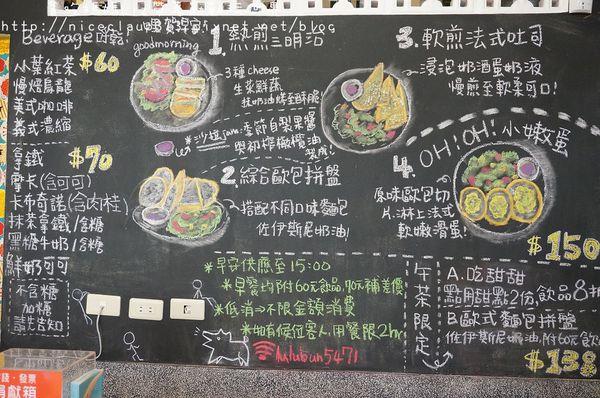 Beverage
goodmorning
$60
小葉紅茶
慢焙烏龍
美式咖啡
義式濃縮
$70
拿鐵
摩卡(含可可)
卡布奇諾(含肉桂)
抹茶拿鐵/含糖
黑糖牛奶/含糖
鮮奶可可
不含糖
加糖
請告知
1. 熱煎三明治
3種cheese
生菜鮮蔬
抗奶油烤至酥脆
*沙拉jam:季節自製果醬
與初榨橄欖油
製成!
2. 綜合歐包拼盤
搭配不同口味麵包
佐伊斯尼奶油!
3. 軟煎法式吐司
浸泡奶酒蛋奶液
慢煎至軟柔可口!
OH!OH!小嫩蛋
4.
原味歐包切
片.淋上法式
軟嫩滑蛋!
$150
*早安供應至15:00
*早餐均附60元飲品,70元補差價
*低消→不限金額消費
*如有候位客人,用餐限2hr
lulubun5471
午茶限定
A.吃甜甜
點用甜點2份,飲品8折
B.歐式麵包拼盤
佐伊斯尼奶油,附60元飲
$138
發票
捐獻箱